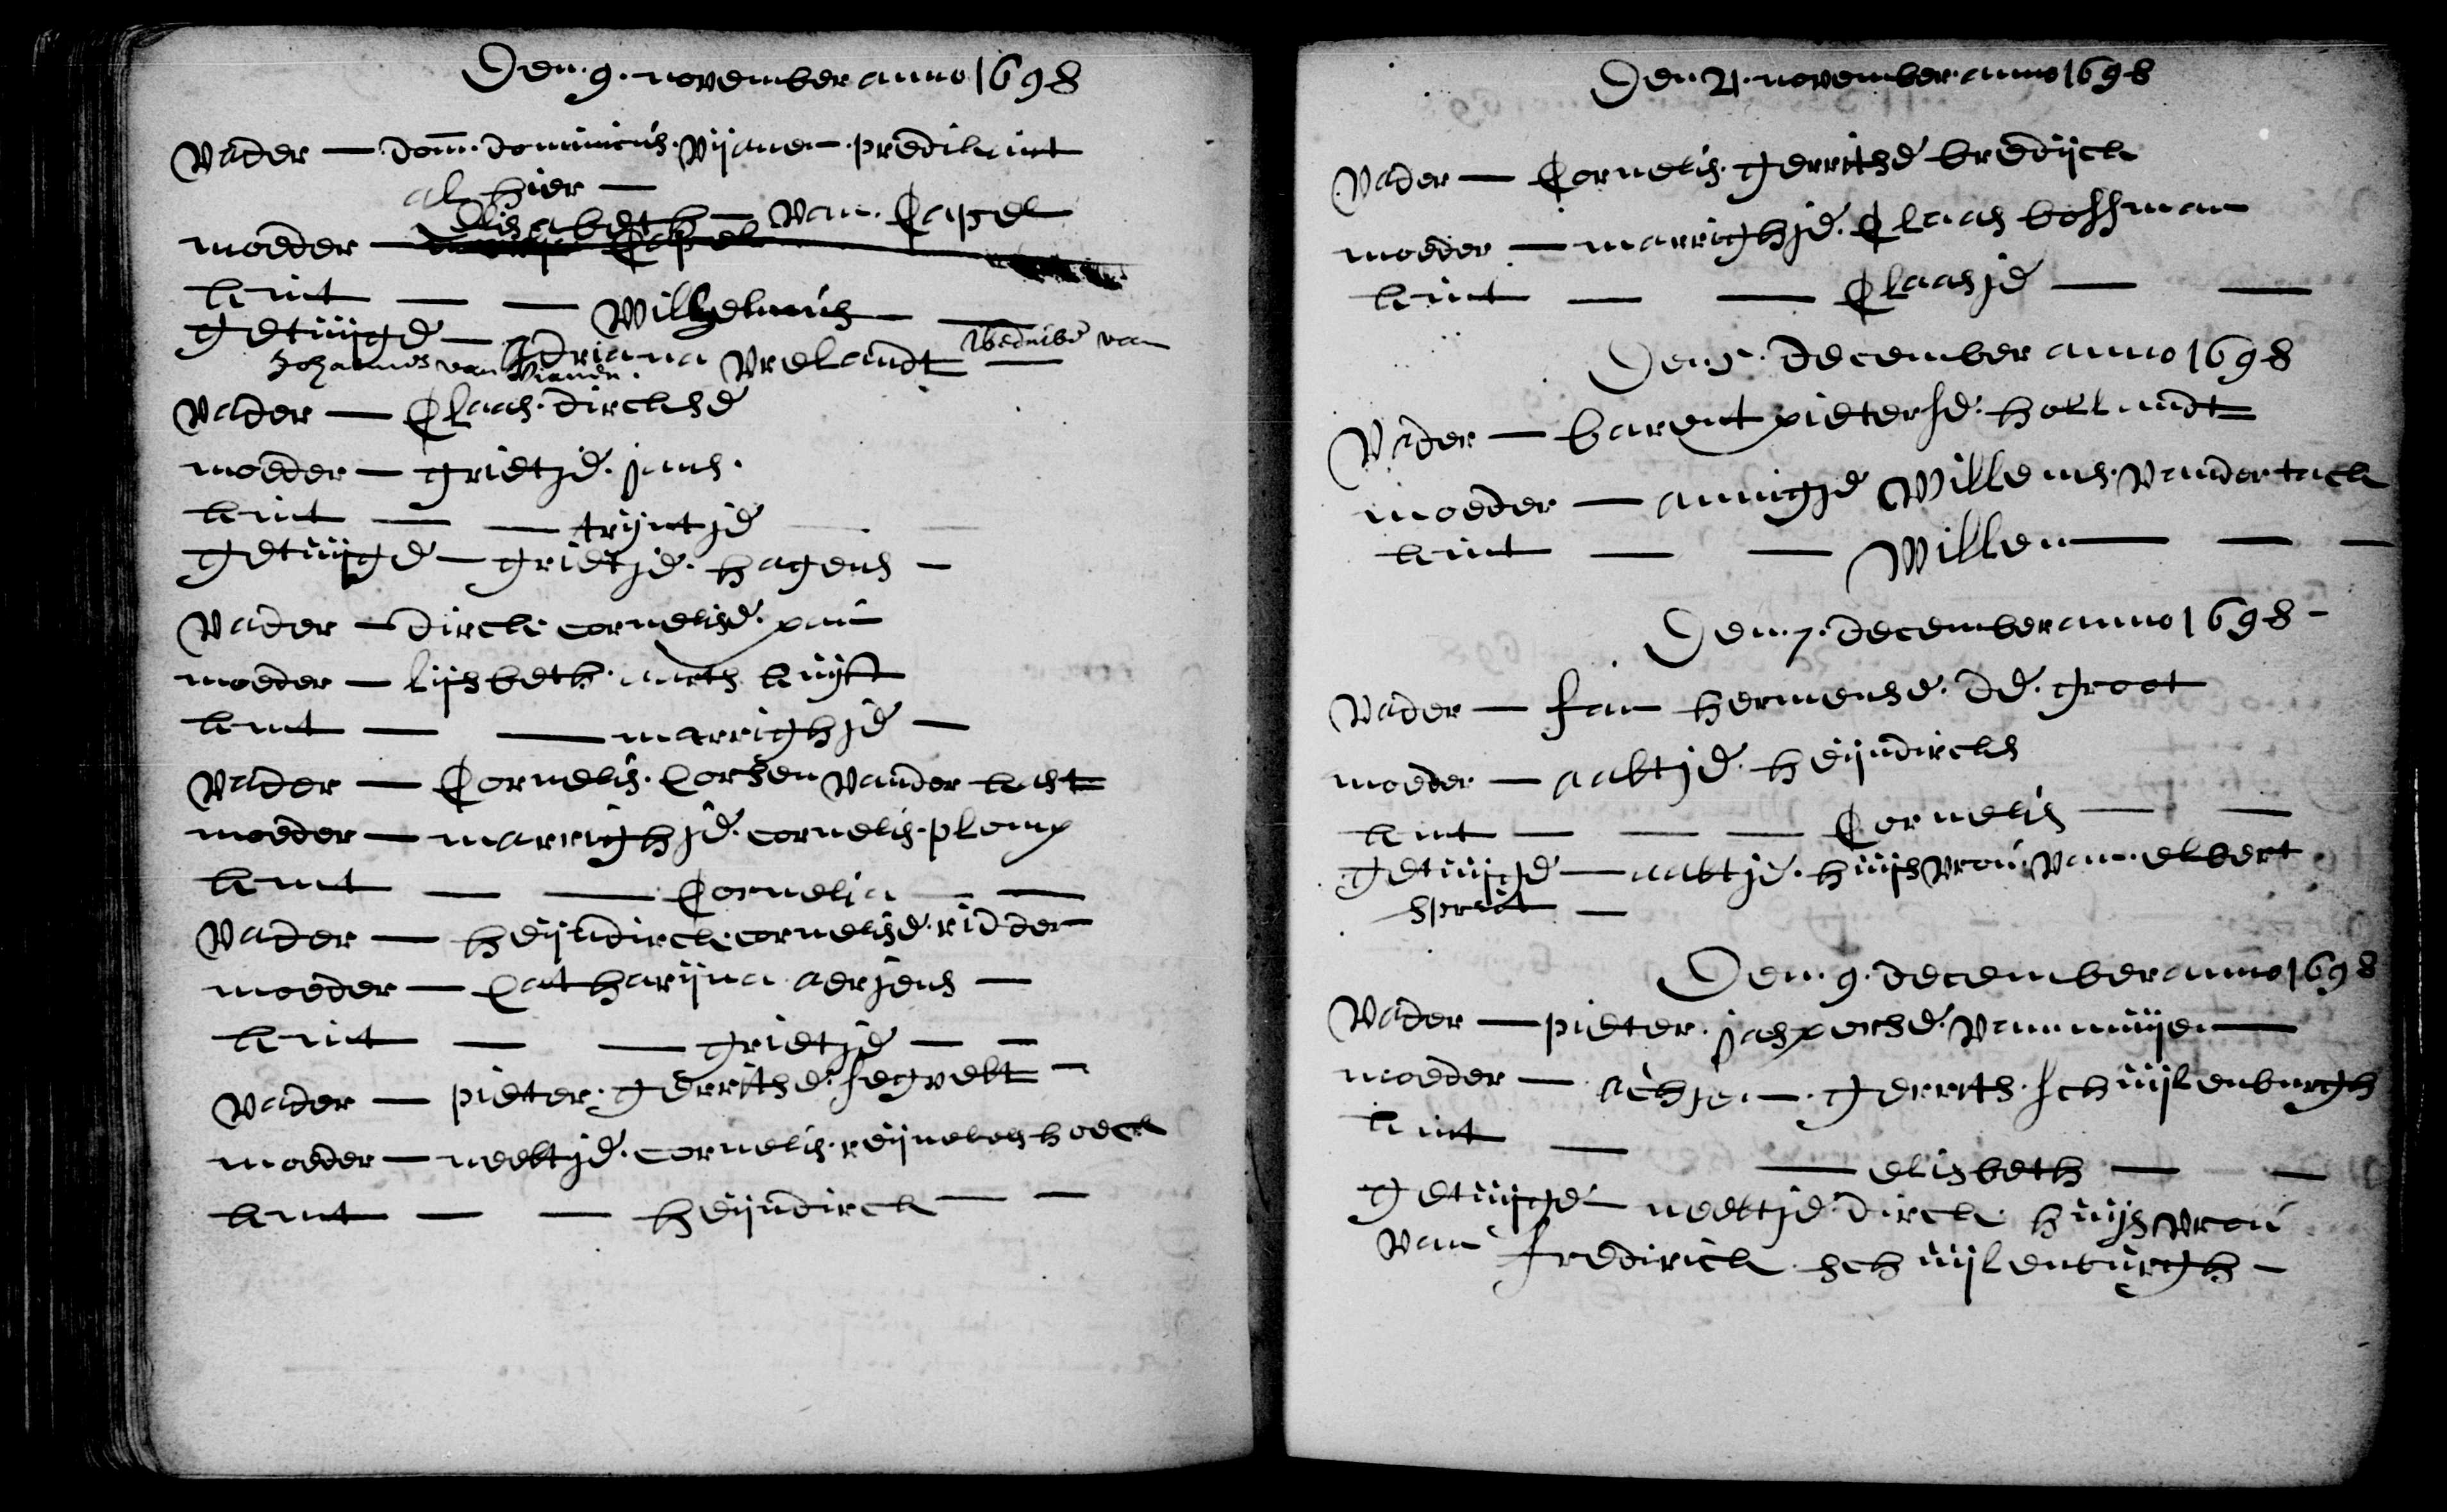 Den 9 november anno 1698
Vader — dom. dominicus Vijanen predikant
al hier —
Elisabeth — van Capel
moeder — Capel
kint — — Wilhelmus —
getuijge — Adriana Vrelandt — Weduwe van
Johannes van Vianen.
Vader — Claas dircksе
moeder — grietje jans
kint — — trijntje
getuijge — grietje hagens —
Vader — dirck cornelise pau
moeder — lijsbeth kuijff
kint — — marrighje —
Vader — Cornelis Corsen vander kast
moeder — marrighje cornelis plomp
kint — — Cornelia — —
Vader — heijndirck cornelise ridder
moeder — Catharijna aerjens —
kint — — grietje — —
Vader — pieter gerritse segvelt —
moeder — neeltje cornelis reijnelshoeck
kint — — heijndirck — —
Den 21 november anno 1698
Vader — Cornelis gerritse bredijck
moeder — marrighje Claas bossman
kint — — Claasje — —
Den 5 december anno 1698
Vader — barent pieterse hollandt
moeder — annigje Willems vander tack
kint — — Willem — — —
Den 7 december anno 1698 —
Vader — Jan hermense de groot
moeder — aaltje heijndircks
kint — — — Cornelis — —
getuijge — aaltje huijsvrou van elbert
spruit —
Den 9 december anno 1698
Vader — pieter jasperse van muijen
moeder — aechjen gerrits schuijlenburgh
kint — — elisbeth — —
getuijge — neeltje dirck huijsvrou
van fredirick schuijlenburgh —